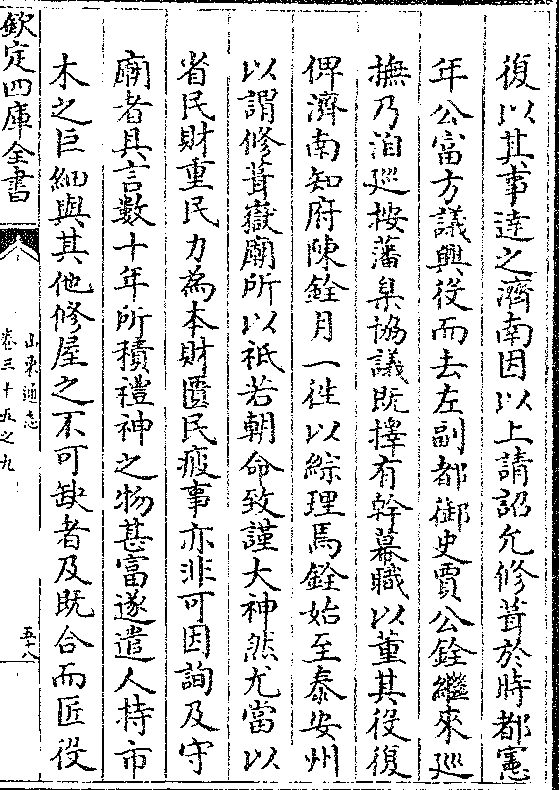 復以其事達之濟南因以上請詔允修葺於時都憲
年公富方議興役而去左副都御史賈公銓繼來巡
撫乃洎巡按藩臬協議既擇有幹幕職以董其役復
俾濟南知府陳銓月一徃以綜理焉銓始至泰安州
以謂修葺嶽廟所以祇若朝命致謹大神然尤當以
省民財重民力為本財匱民疲事亦非可因詢及守
廟者具言數十年所積禮神之物甚富遂遣人持市
木之巨細與其他修屋之不可缺者及既合而匠役
欽定四庫全書
山東通志
卷三十五之九
五十八